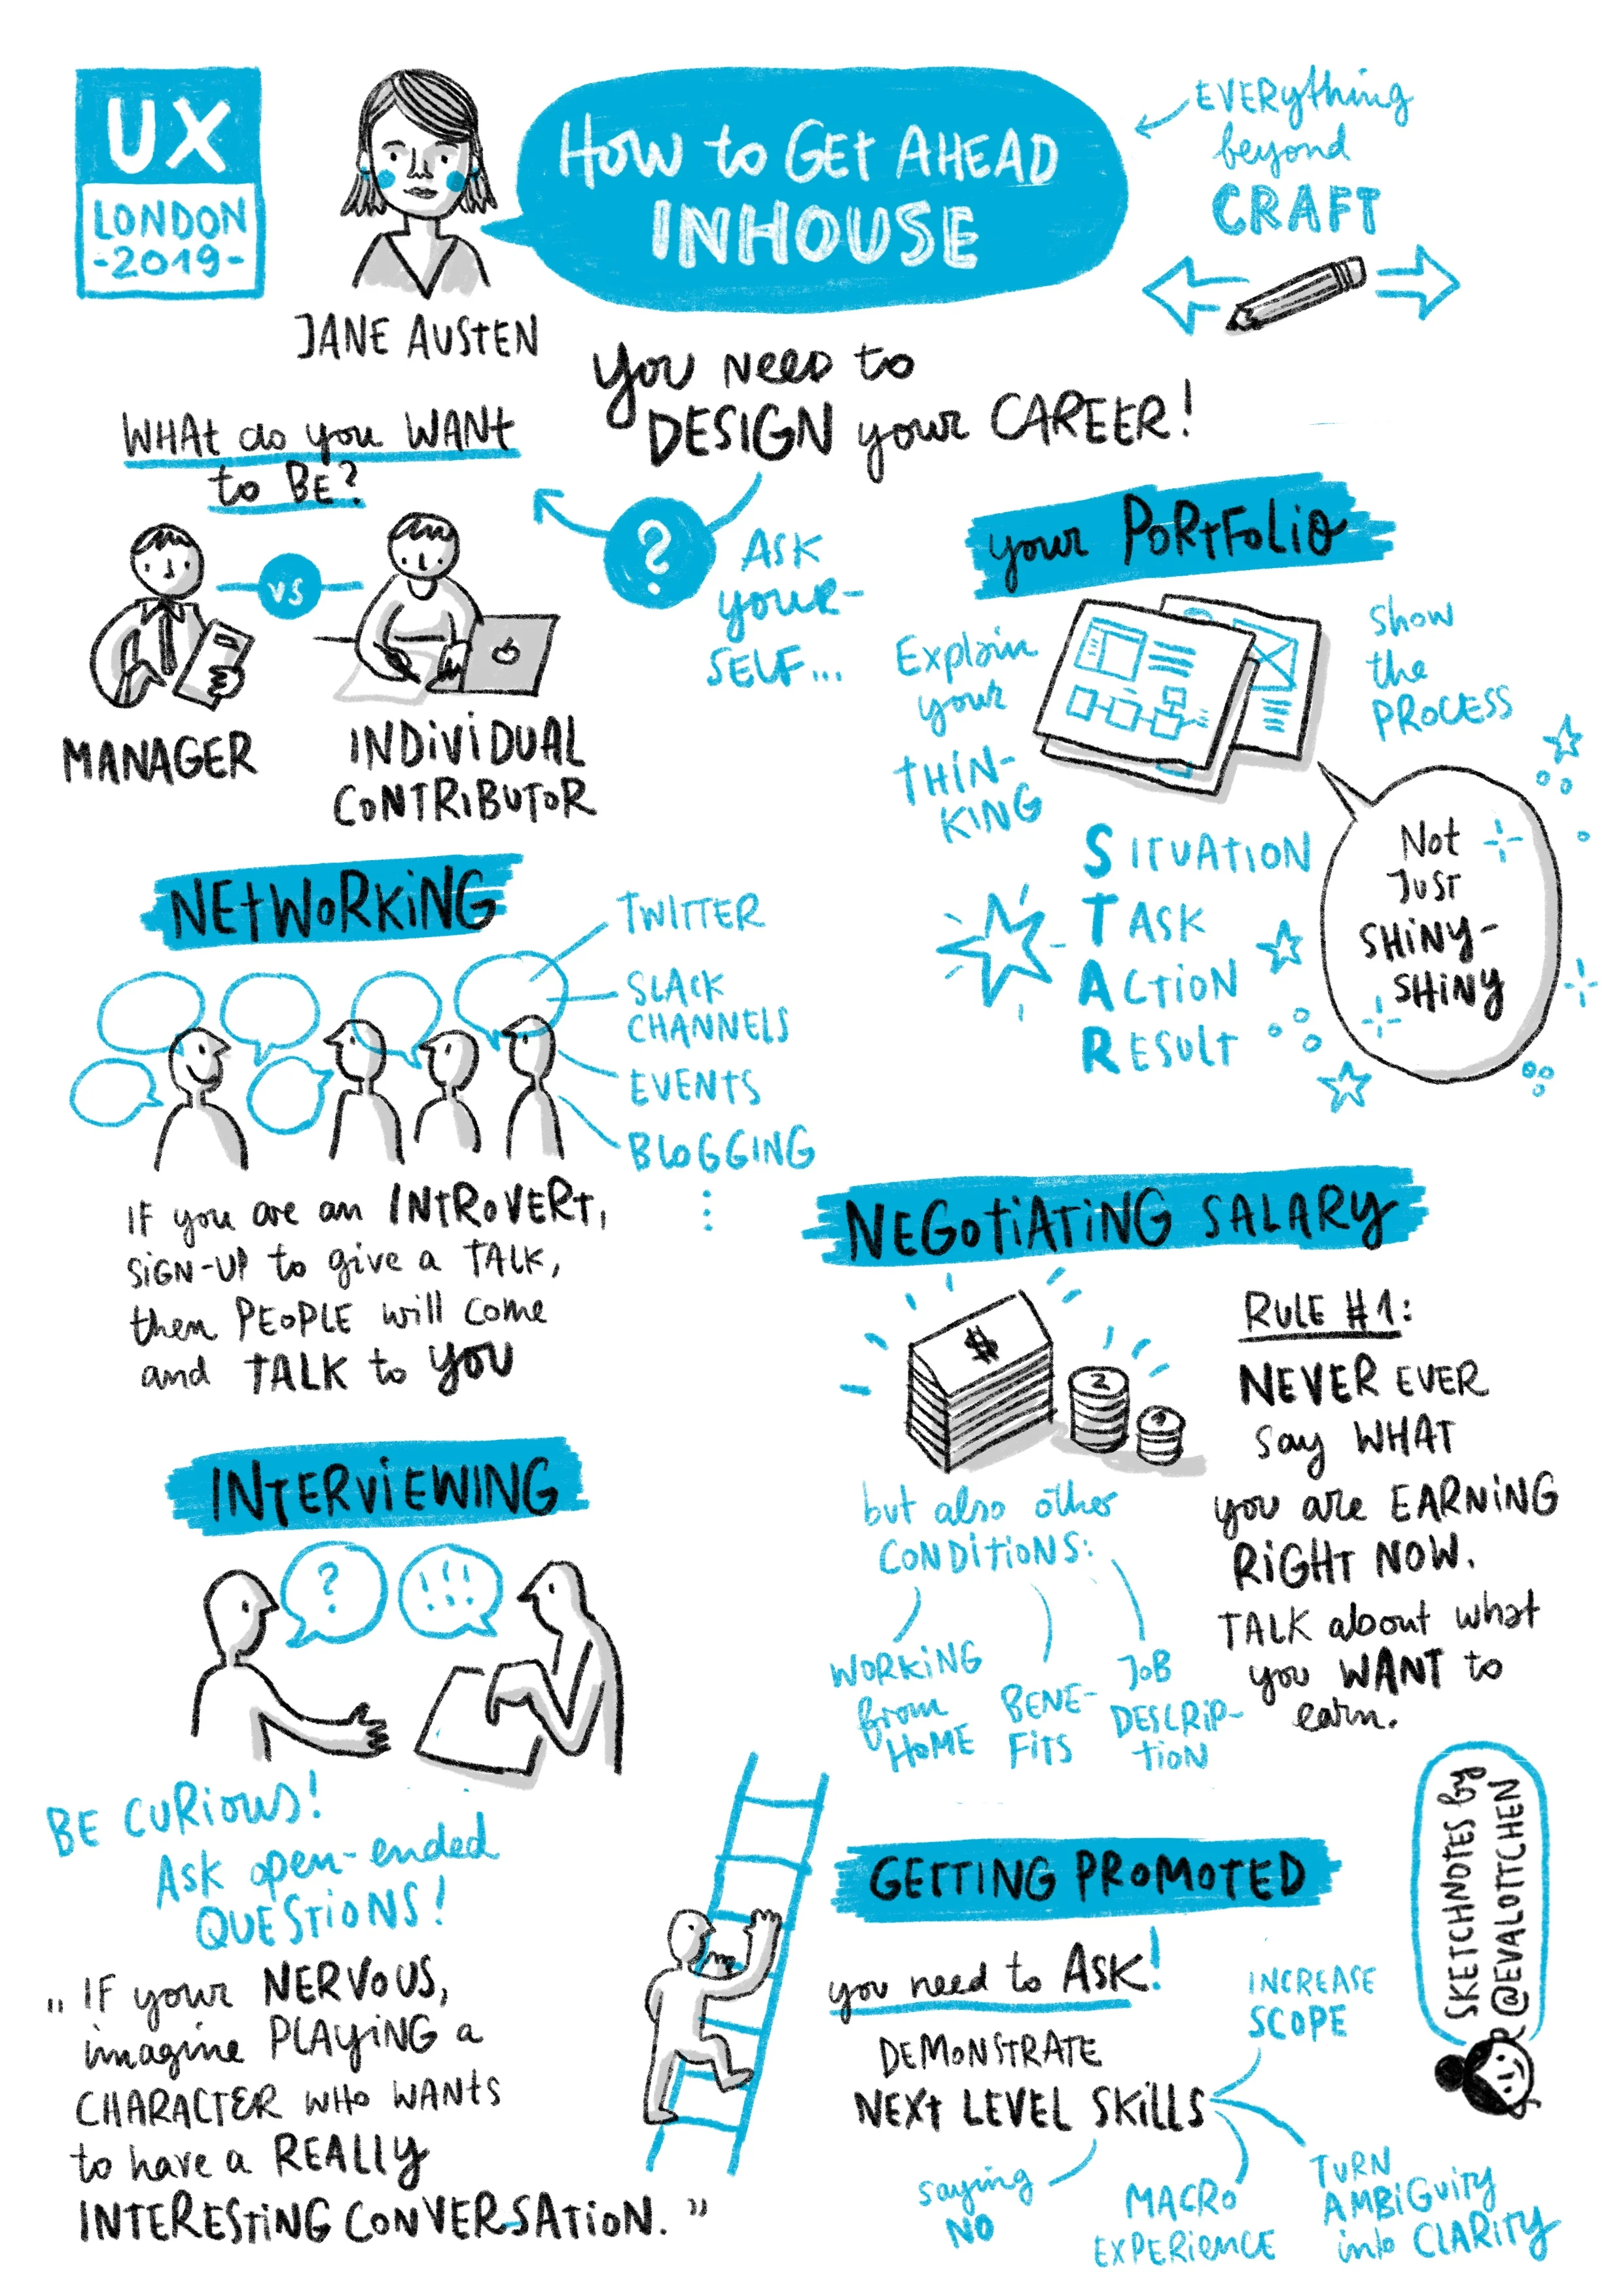 UX
LONDON
-2019-
JANE AUSTEN
HOW to GEt AHEAD
INHOUSE
EVERything
beyond
CRAFT
you NEED to
DESIGN your CAREER!
WHAt do you WANt
to BE?
VS
MANAGER
INDiViDUAL
CONTRIBUTOR
?
ASK
YOUR-
SELF...
your PORtFOLiO
Explain
your
tHiN-
KING
Show
the
PROCESS
Not
JUST
SHiNy-
SHiNY
SITUATION
TASK
ACTiON
RESULT
NEtWORKiNG
TWITTER
SLACK
CHANNELS
EVENTS
BLOGGING
⋮
IF you are an INtROVERT,
SiGN-UP to give a TALK,
then PEOPLE will come
and TALK to YOU
NEGOtiATiNG SALARY
$
2
RULE #1:
NEVER EVER
say WHAT
you are EARNiNG
RiGHT NOW.
TALK about what
you WANT to
earn.
but also other
CONDITIONS:
WORKiNG
from
HOME
BENE-
FiTS
JOB
DESCRIP-
TiON
INTERViEWING
?
!!!
BE CURiOUS!
ASK open-ended
QUESTiONS!
„ IF your NERVOUS,
imagine PLAYiNG a
CHARACTER WHO WANtS
to have a REALLY
INTERESTiNG CONVERSATiON. ”
GETTING PROMOTED
you need to ASK!
DEMONSTRATE
NEXt LEVEL SKiLLS
INCREASE
SCOPE
saying
NO
MACRO
EXPERiENCE
TURN
AMBiGUity
into CLARitY
SKETCHNOTES by
@EVALOTTCHEN